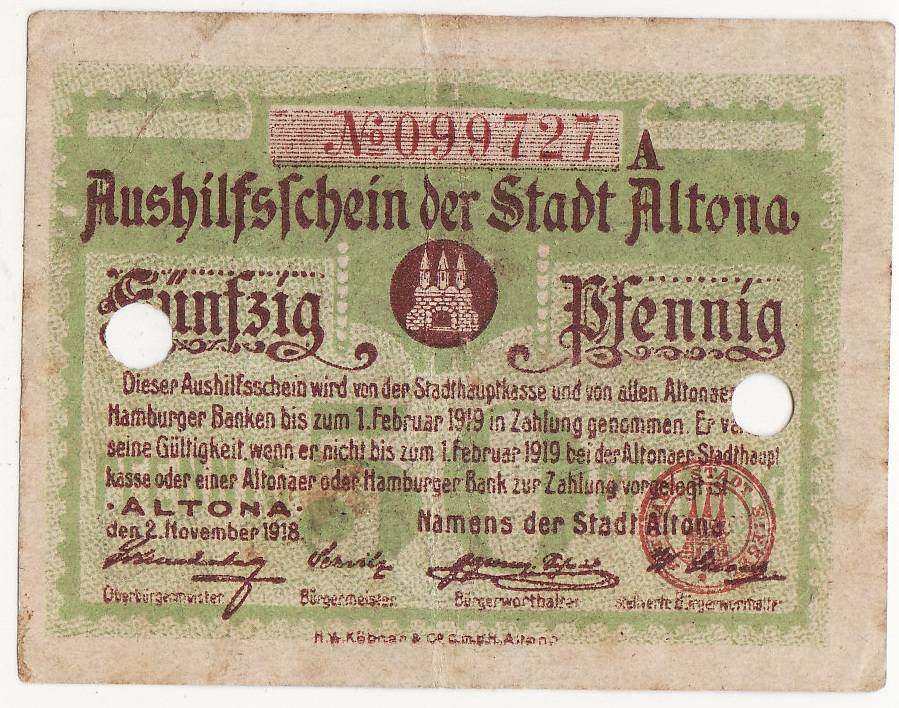 № 099727 A
Aushilfsschein der Stadt Altona
Fünfzig Pfennig
Dieser Aushilfsschein wird von der Stadthauptkasse und von allen Altonaer
Hamburger Banken bis zum 1. Februar 1919 in Zahlung genommen. Er
seine Gültigkeit, wenn er nicht bis zum 1. Februar 1919 bei der Altonaer Stadthaupt
kasse oder einer Altonaer oder Hamburger Bank zur Zahlung vorgelegt ist
·ALTONA·
den 2. November 1918.
Namens der Stadt Altona.
STADT
Oberbürgermeister Bürgermeister Bürgerworthalter
H.W. Köbner & Co G.m.b.H. Altona